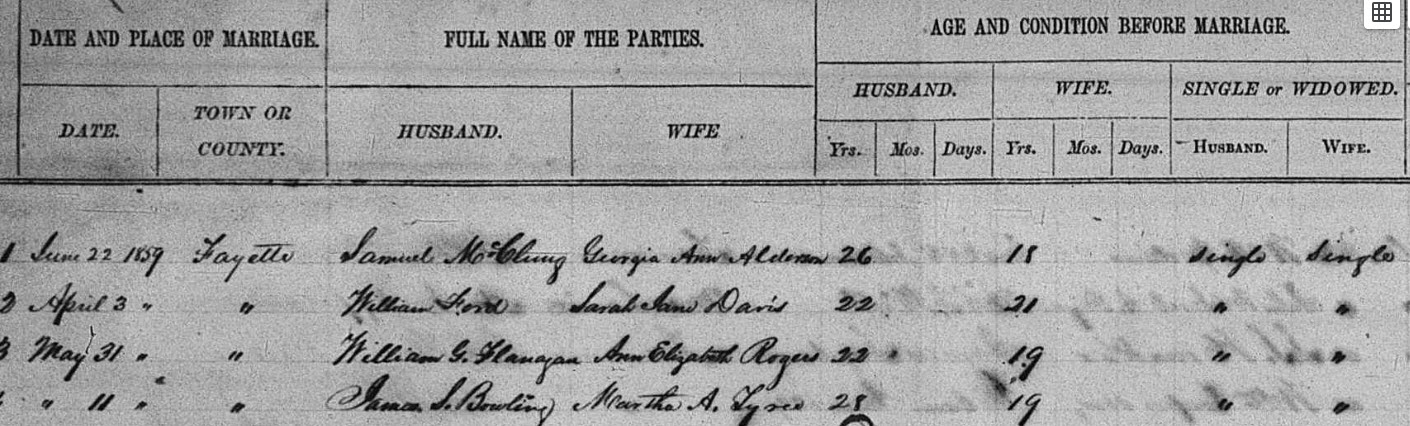 DATE AND PLACE OF MARRIAGE. FULL NAME OF THE PARTIES. AGE AND CONDITION BEFORE MARRIAGE.
HUSBAND. WIFE. SINGLE or WIDOWED.
DATE. TOWN OR COUNTY. HUSBAND. WIFE Yrs. Mos. Days. Yrs. Mos. Days. HUSBAND. WIFE.
1 June 22 1859 Fayette Samuel McClung Georgia Ann Alderson 26 18 Single Single
2 April 3 " " William Ford Sarah Jane Davis 22 21 " "
3 May 31 " " William G. Flanagan Ann Elizabeth Rogers 22 19 " "
" 11 " " James S. Bowling Martha A. Tyree 28 19 " "